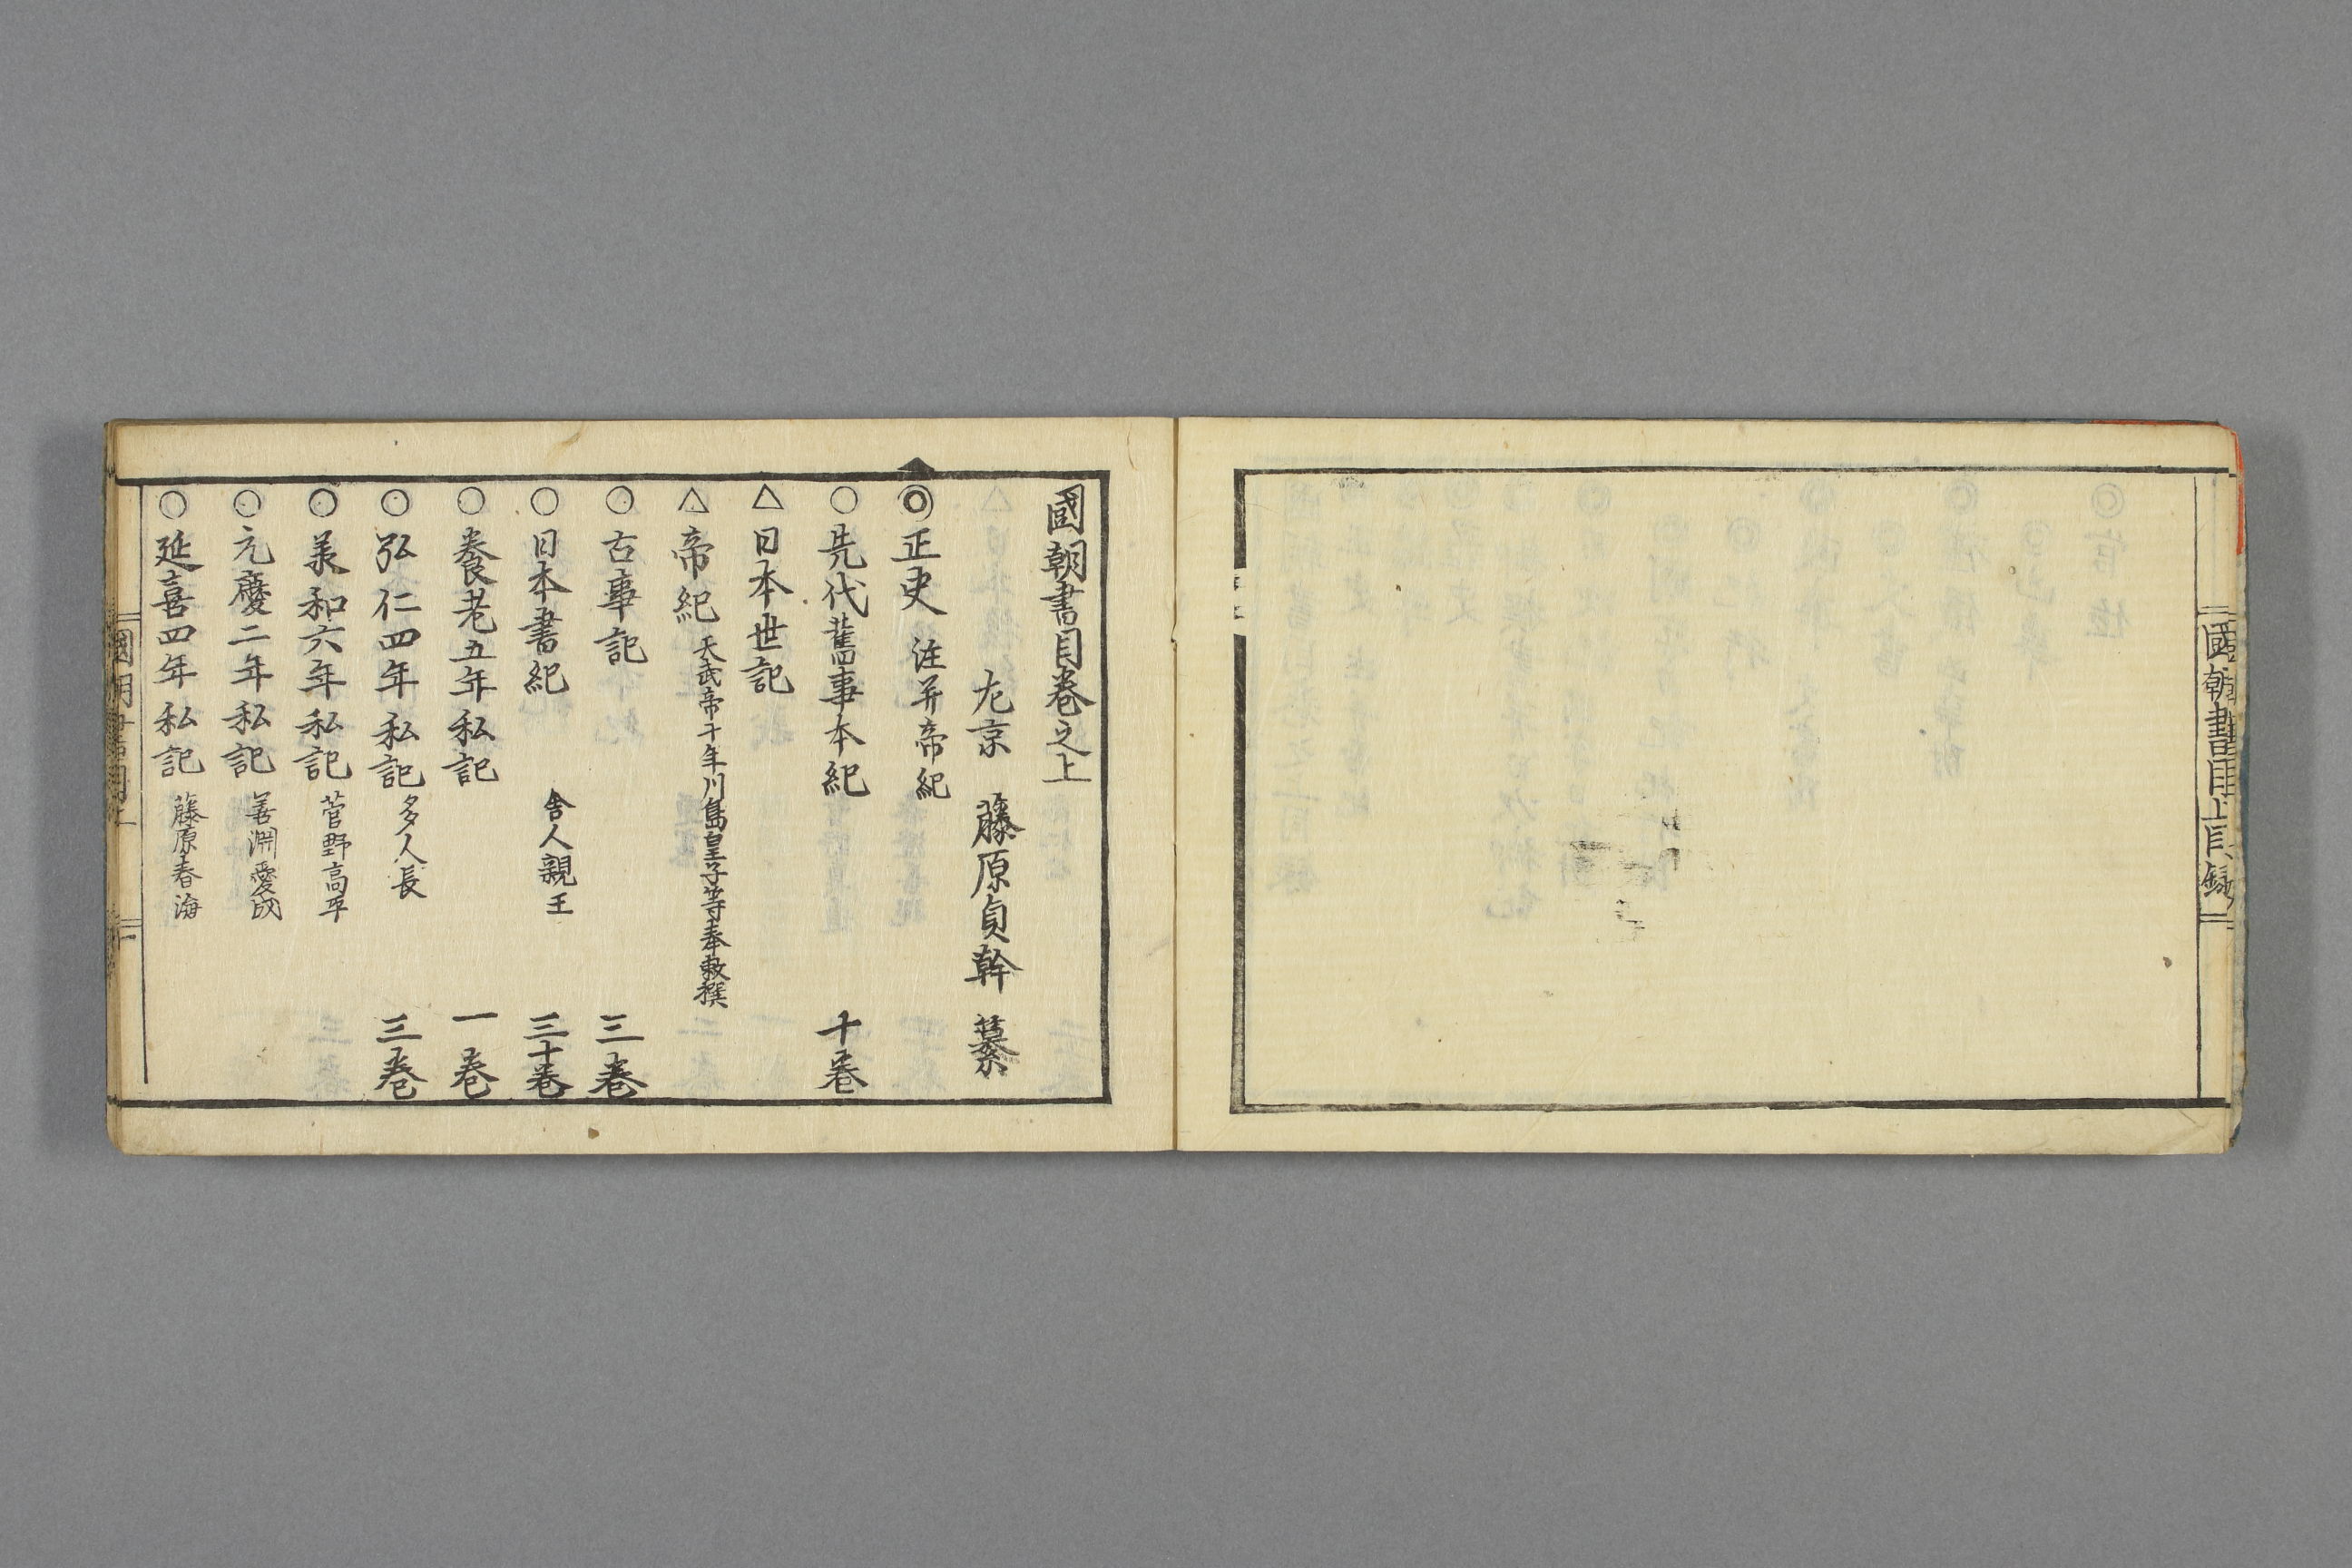 國朝書目上目録
國朝書目卷之上
左京　藤原貞幹纂
◎正史　注并帝紀
○先代舊事本紀　十卷
△日本世記
△帝紀　天武帝十年川島皇子等奉敕撰
○古事記　三卷
○日本書紀　舍人親王　三十卷
○養老五年私記　一卷
○弘仁四年私記　多人長　三卷
○羕和六年私記　菅野高平
○元慶二年私記　善淵愛成
○延喜四年私記　藤原春海
國朝書目上　一